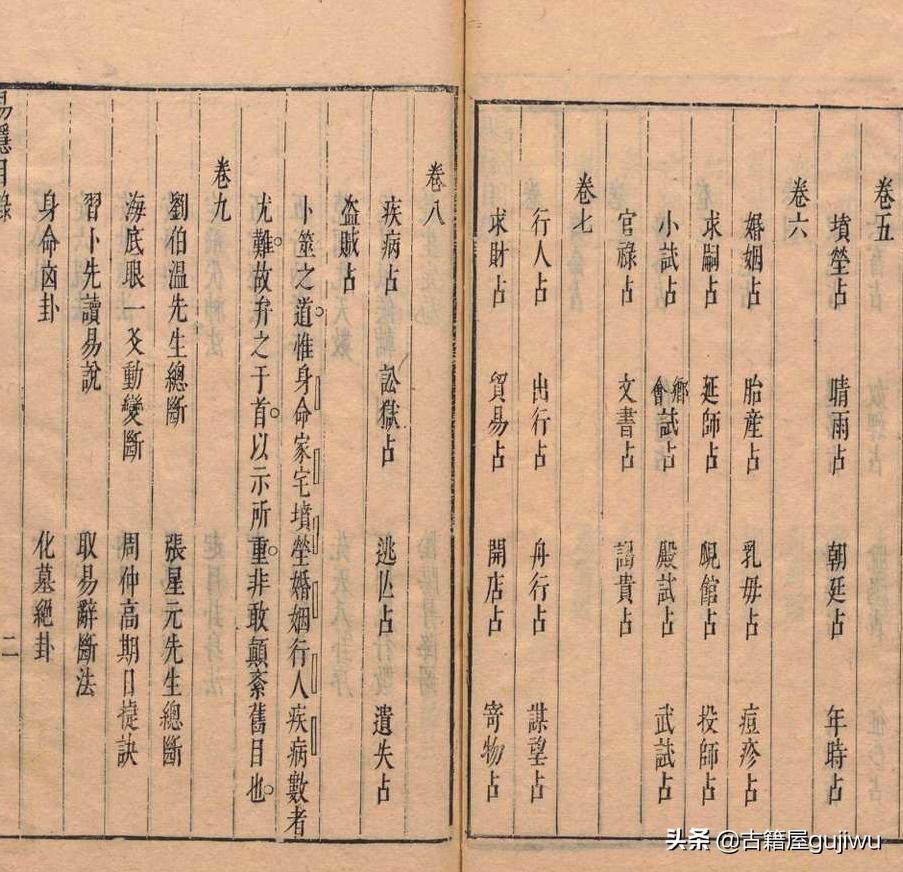 卷五
墳塋占 晴雨占 朝廷占 年時占
卷六
婚姻占 胎產占 乳母占 痘疹占
求嗣占 延師占 覓館占 投師占
小試占 鄉會試占 殿試占 武試占
官祿占 文書占 謁貴占
卷七
行人占 出行占 舟行占 謀望占
求財占 貿易占 開店占 寄物占
卷八
疾病占 訟獄占 逃亡占 遺失占
盜賊占
卜筮之道惟身命家宅墳塋婚姻行人疾病數者
尤難故弁之于首以示所重非敢顛紊舊目也
卷九
劉伯溫先生總斷 張星元先生總斷
海底眼一爻動變斷 周仲高期日捷訣
習卜先讀易說 取易辭斷法
身命卤卦 化墓絕卦
易隱目錄 二
头条 @古籍屋gujiwu